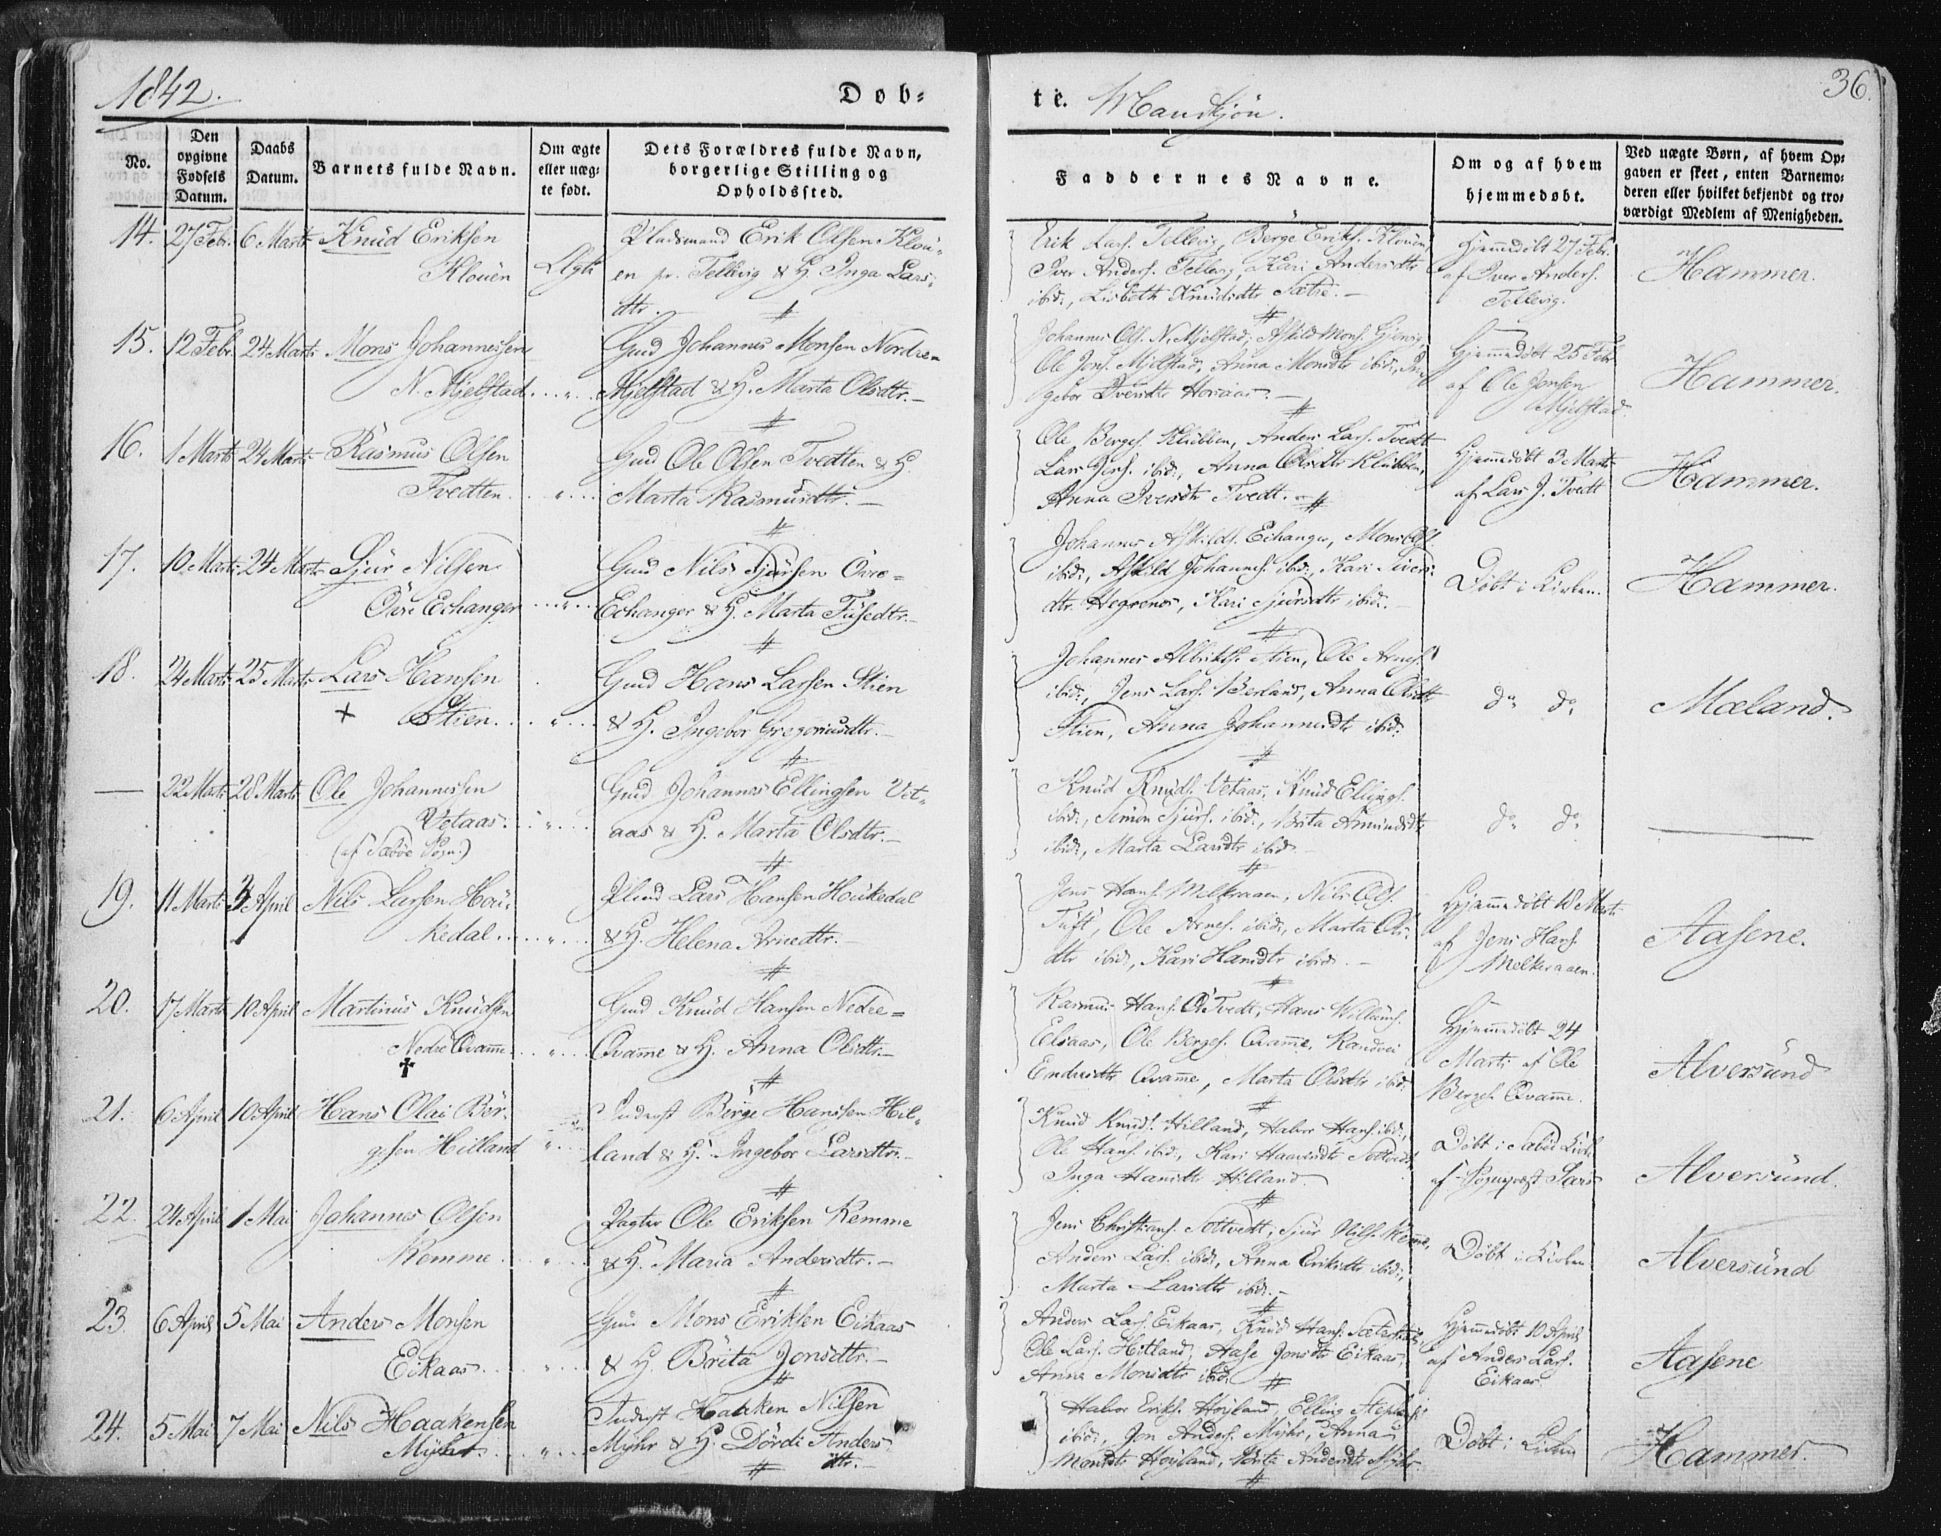 1842.
Dob-
te. Mandkjön.
36.
No.
Den opgivne Fødsels Datum.
Daabs Datum.
Barnets fulde Navn.
Om ægte eller uæg-te født.
Dets Forældres fulde Navn, borgerlige Stilling og Opholdssted.
Faddernes Navne.
Om og af hvem hjemmedøbt.
Ved uægte Børn, af hvem Op-gaven er skeet, enten Barnemo-deren eller hvilket bekjendt og tro-værdigt Medlem af Menigheden.
14. 27 Febr. 6 Marts Knud Eriksen
Klouen Ægte
Pladsmand Erik Olsen Klou-
en pr. Tellevig & H. Inga Lars-
dtr.
Erik Lars. Tellevig, Berge Eriks. Klouen,
Iver Anders. Tellevig, Kari Andersdtr
ibid., Lisbeth Knudsdtr Sætre.
Hjemmedöbt 27 Febr.
af Iver Anders.
Tellevig.
Hammer.
15. 12 Febr. 24 Marts Mons Johannessen
N. Mjelstad
Gmd Johannes Monsen Nordre-
Mjelstad & H. Marta Olsdtr.
Johannes Ols. N. Mjelstad, Askild Mons.
Ole Jons. Mjelstad, Anna Monsdtr ibid., In-
gebor
Hjemmedöbt 25 Febr
af Ole Jonsen
Mjelstad.
Hammer.
16. 1 Marts 24 Marts Rasmus Olsen
Tvedten
Gmd Ole Olsen Tvedten & H.
Marta Rasmusdtr.
Ole Berges. Klubben, Anders Lars. Tvedt
Lars Jons. ibid., Anna Olsdtr Klubben,
Anna Iversdtr Tvedt.
Hjemmedöbt 3 Marts
af Lars J. Tvedt
Hammer.
17. 10 Marts 24 Marts Sjur Nilsen
Övre Echanger
Gmd Nils Sjursen Övre-
Echanger & H. Marta
Johannes Askilds. Echanger, Mons Ols.
ibid., Askild Johannes. ibid., Kari Sivers-
dtr Hegrenes, Kari Sjursdtr ibid.
Döbt i Kirken.
Hammer.
18. 24 Marts 25 Marts Lars Hansen
+ Stien.
Gmd Hans Larsen Stien
& H. Ingebor Gregoriusdtr.
Johannes Albrikts. Stien, Ole Arnes.
ibid., Jens Lars. Berland, Anna Olsdtr
Stien, Anna Johannesdtr ibid.
do do
Mæland.
— 22 Marts 28 Marts Ole Johannessen
Vetaas.
(af Sæböe Sogn.)
Gmd Johannes Ellingsen Vet-
aas & H. Marta Olsdtr.
Knud Knuds. Vetaas, Knud Ellings.
ibid., Simon Sjurs. ibid., Brita Amundsdtr
ibid., Marta Larsdtr ibid.
do do
19. 11 Marts 3 April Nils Larsen Hou-
kedal
Lars Hansen Houkedal
& H. Helena Arnedtr.
Jens Hans. Melkeraaen, Nils Ols.
Tuft, Ole Arnes. ibid., Marta Ols-
dtr ibid., Kari Hansdtr ibid.
Hjemmedöbt 18 Marts
af Jens Hans.
Melkeraaen.
Aasene.
20. 17 Marts 10 April Martinus Knudsen
Nedre Qvamme
†
Gmd Knud Hansen Nedre-
Qvamme & H. Anna Olsdtr.
Rasmus Hans. Tvedt, Hans Willums.
Eikaas, Ole Berges. Qvamme, Randvei
Endresdtr Qvamme, Marta Olsdtr ibid.
Hjemmedöbt 24
Marts af Ole
Berges. Qvamme.
Alversund
21. 6 April 10 April Hans Olai Bör-
gesen Hilland
Inderst Börge Hanssen Hil-
land & H. Ingebor Larsdtr.
Knud Knuds. Hilland, Halvor Hans. ibid.,
Ole Hans. ibid., Kari Haaversdtr Sætvedt,
Inga Hansdtr Hilland.
Döbt i Sæböe Kirke
af Sognepræst Sars
Alversund.
22. 24 April 1 Mai Johannes Olsen
Kemme
Ole Eriksen Remme
& H. Maria Andersdtr.
Jens Christians. Sætvedt, Sjur Nils. Remme,
Anders Lars. ibid., Anna Eriksdtr ibid.,
Marta Larsdtr ibid.
Döbt i Kirken
Alversund
23. 6 April 5 Mai Anders Monsen
Eikaas.
Gmd Mons Eriksen Eikaas
& H. Brita Jonsdtr.
Anders Lars. Eikaas, Knud Hans.
Ole Lars. Hilland, Aase Jonsdtr Eikaas,
Anne Monsdtr ibid.
Hjemmedöbt 10 April
af Anders Lars.
Eikaas
Aasene
24. 5 Mai 7 Mai Nils Haakensen
Myhr.
Inderst Haaken Nilsen
Myhr & H. Dördi Anders-
dtr.
Halvor Eriks. Höyland, Elling
ibid., Jon Anders. Myhr, Anna
Monsdtr Höyland, Brita Andersdtr Myhr.
Döbt i Kirken
Hammer.